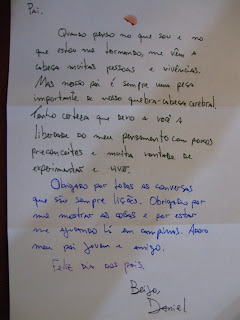 Pai,
Quando penso no que sou e no
que estou me tornando, me vêm a
cabeça muitas pessoas e vivências.
Mas nosso pai é sempre uma peça
importante de nosso quebra-cabeça cerebral.
Tenho certeza que devo a você a
liberdade do meu pensamento com poucos
preconceitos e muita vontade de
experimentar e viver.
Obrigado por todas as conversas
que são sempre lições. Obrigado por
me mostrar as coisas e por estar
me ajudando lá em campinas. Adoro
meu pai jovem e amigo.
Feliz dia dos pais.
Beijo,
Daniel